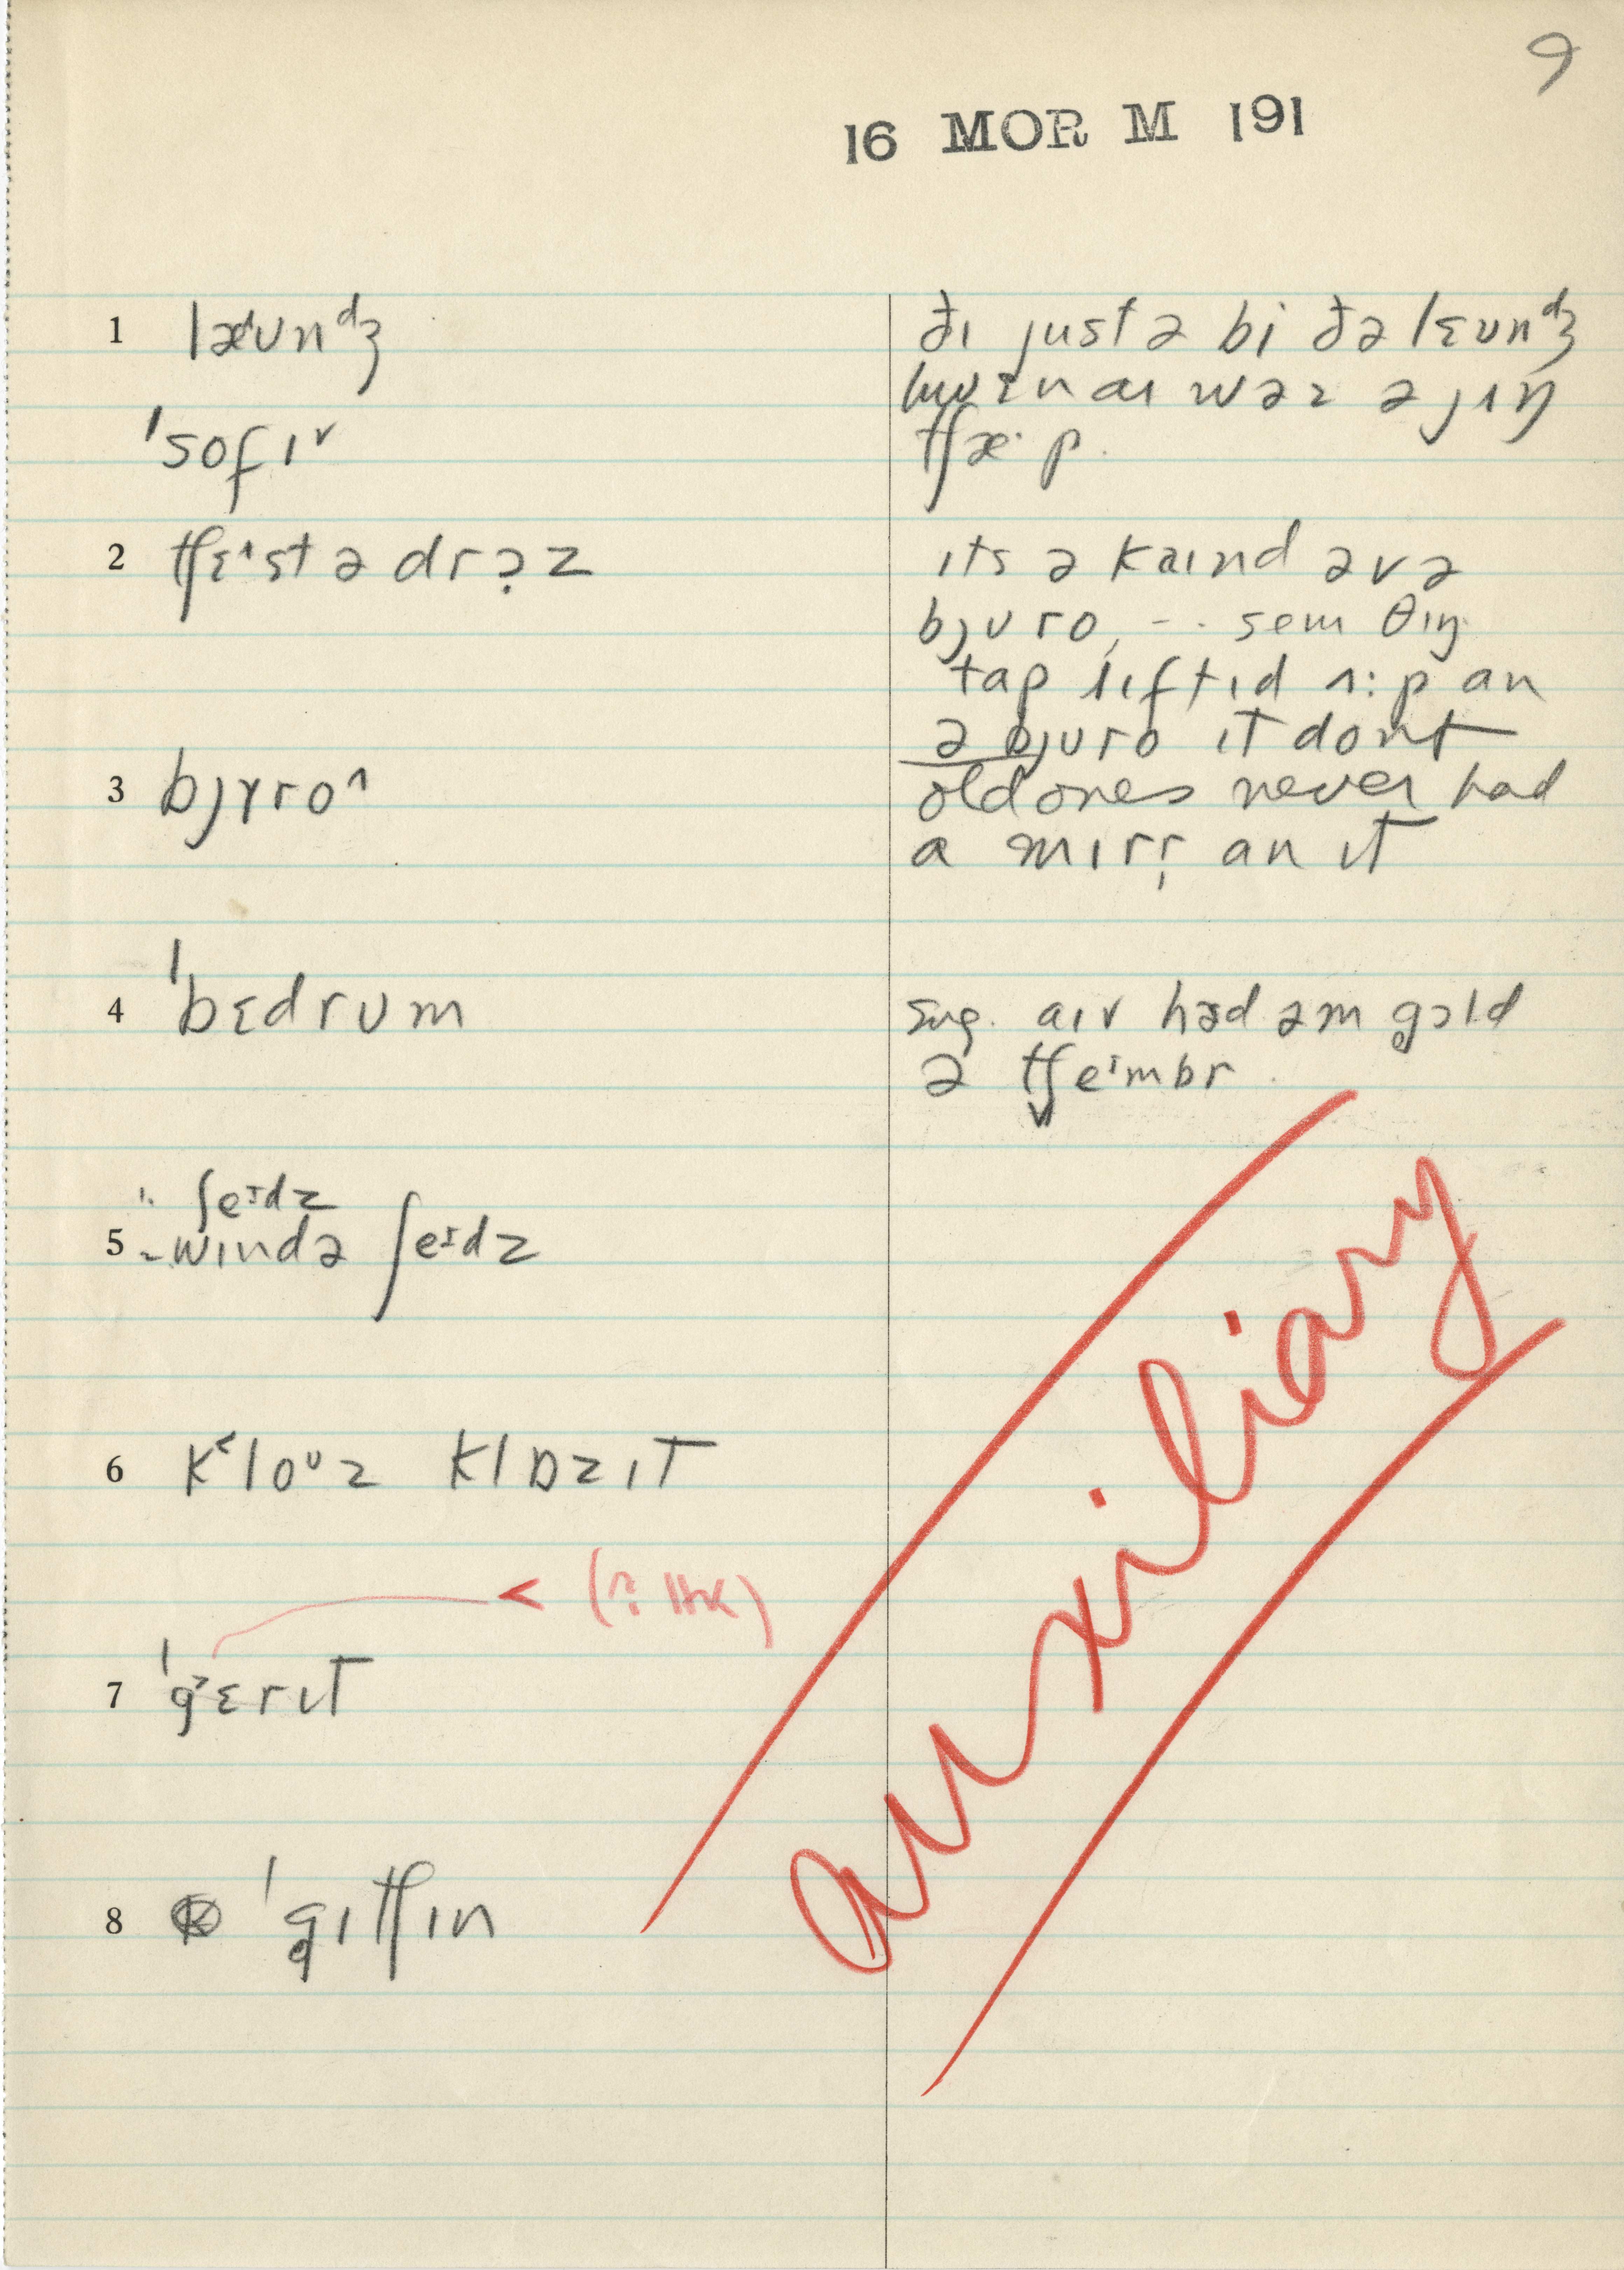 9
16 MOR M 191
1 læᵈʊnᵈʒ
ðɪ justə bi ðə lɛʊnᵈʒ
hwɛn aɪ wəz ə jɪŋ
tʃæ·p.
ˈsofɪ˅
2 tʃɛ^stədrɔ̣z
ɪts ə kaɪnd əvə
bjʊro, -- sem θɪŋ.
tap lɪftɪd ʌ:p an
ə bjuro ɪt dont
3 bjɤro^
old ones never had
a mɪrr̩ an ɪt
4 ˈbɛdrʊm
sug. aɪv hɜd əm gɔld
ə tʃeᶦmbr
1. ʃeᶦdz
5 2. wɪndə ʃeᶦdz
6 k˂loᶷz klɒzɪt
< (? HK)
7 ˈg˃ɛrɪt
8 ˈgɪtʃɪn
auxiliary